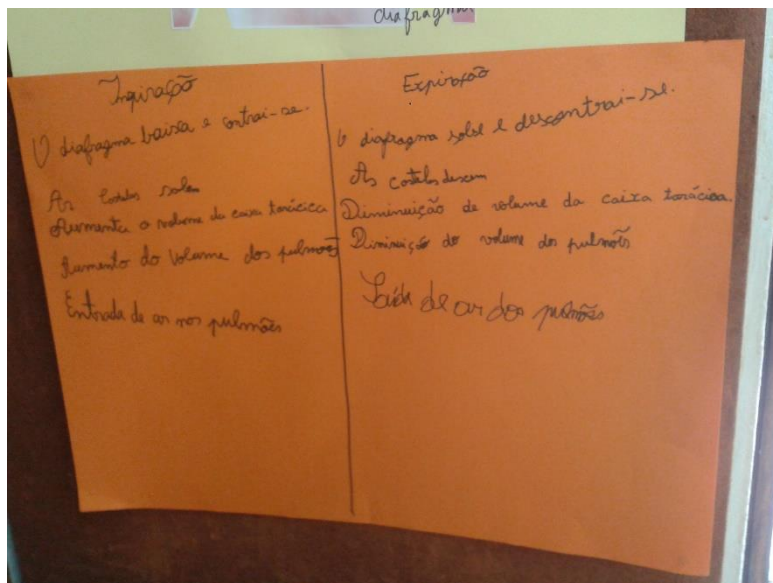 diafragma
Inspiração
O diafragma baixa e contrai-se.
As Costelas sobem
Aumenta o volume da caixa torácica
Aumento do Volume dos pulmões
Entrada de ar nos pulmões
Expiração
O diafragma sobe e descontrai-se.
As costelas descem
Diminuição de volume da caixa torácica.
Diminuição do volume dos pulmões
Saída de ar dos pulmões